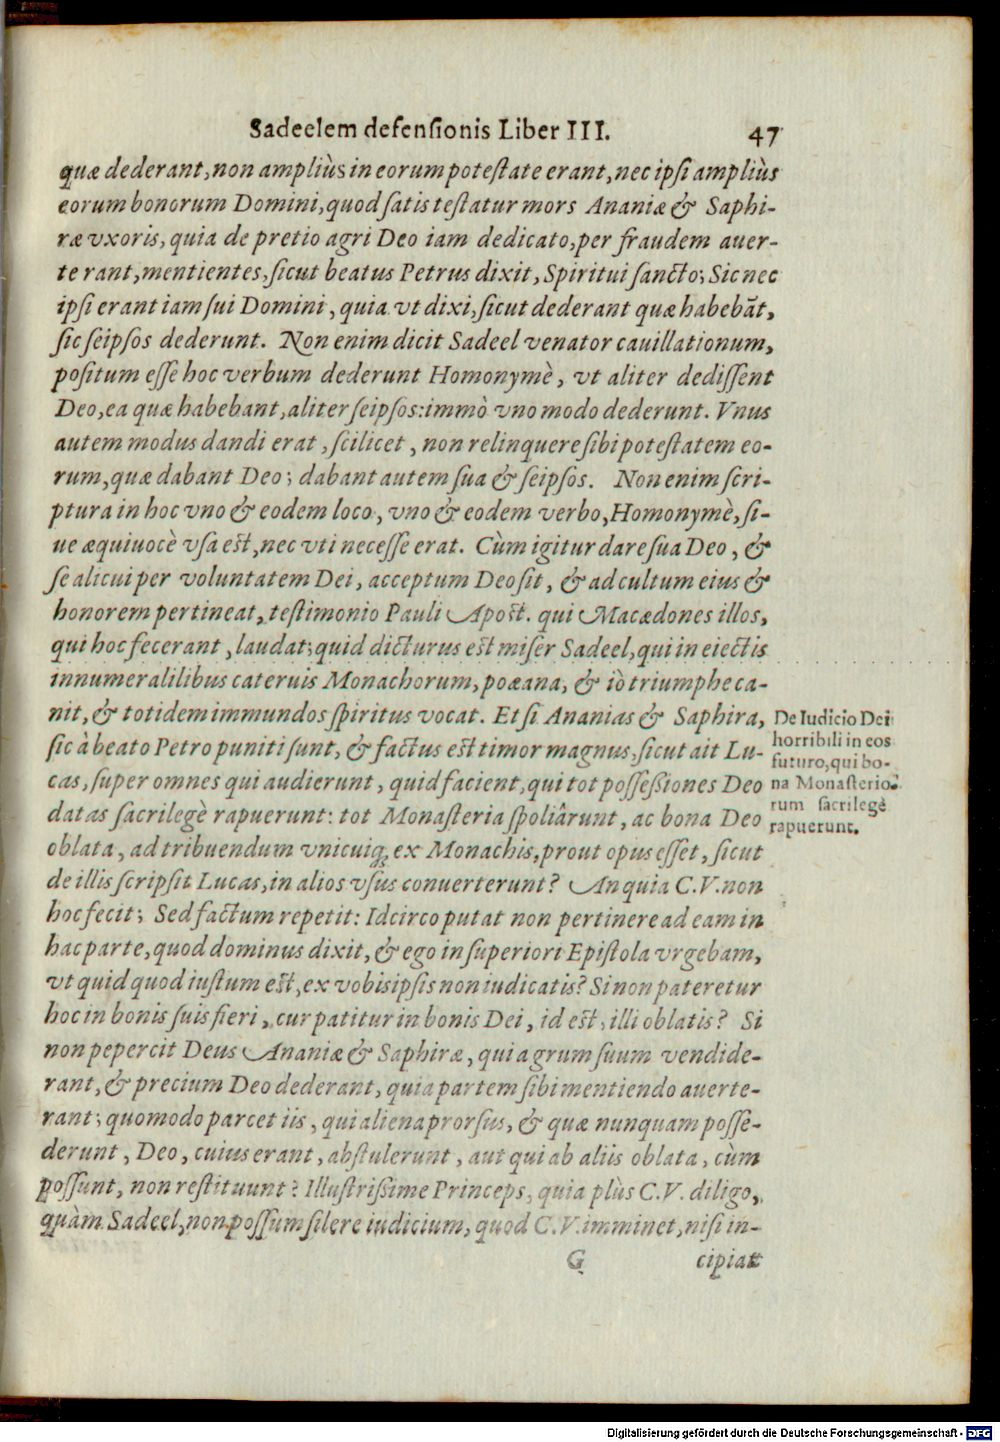 Sadeelem defensionis Liber III. 47
quæ dederant, non ampliùs in eorum potestate erant, nec ipsi ampliùs
eorum bonorum Domini, quod satis testatur mors Ananiæ & Saphi-
ræ vxoris, quia de pretio agri Deo iam dedicato, per fraudem auer-
terant, mentientes, sicut beatus Petrus dixit, Spiritui sancto; Sic nec
ipsi erant iam sui Domini, quia vt dixi, sicut dederant quæ habebãt,
sic seipsos dederunt. Non enim dicit Sadeel venator cauillationum,
positum esse hoc verbum dederunt Homonymè, vt aliter dedissent
Deo, ea quæ habebant, aliter seipsos: immò vno modo dederunt. Vnus
autem modus dandi erat, scilicet, non relinquere sibi potestatem eo-
rum, quæ dabant Deo; dabant autem sua & seipsos. Non enim scri-
ptura in hoc vno & eodem loco, vno & eodem verbo, Homonymè, si-
ue æquiuocè vsa est, nec vti necesse erat. Cùm igitur dare sua Deo, &
se alicui per voluntatem Dei, acceptum Deo sit, & ad cultum eius &
honorem pertineat, testimonio Pauli Apost. qui Macædones illos,
qui hoc fecerant, laudat; quid dicturus est miser Sadeel, qui in eiectis
innumeralilibus cateruis Monachorum, poæana, & iò triumphe ca-
nit, & totidem immundos spiritus vocat. Et si Ananias & Saphira,
sic à beato Petro puniti sunt, & factus est timor magnus, sicut ait Lu-
cas, super omnes qui audierunt, quid facient, qui tot possessiones Deo
datas sacrilegè rapuerunt: tot Monasteria spoliârunt, ac bona Deo
oblata, ad tribuendum vnicuiq; ex Monachis, prout opus esset, sicut
de illis scripsit Lucas, in alios vsus conuerterunt? An quia C.V. non
hoc fecit; Sed factum repetit: Idcirco putat non pertinere ad eam in
hac parte, quod dominus dixit, & ego in superiori Epistola vrgebam,
vt quid quod iustum est, ex vobis ipsis non iudicatis? Si non pateretur
hoc in bonis suis fieri, cur patitur in bonis Dei, id est, illi oblatis? Si
non pepercit Deus Ananiæ & Saphiræ, qui agrum suum vendide-
rant, & precium Deo dederant, quia partem sibi mentiendo auerte-
rant; quomodo parcet iis, qui aliena prorsus, & quæ nunquam posse-
derunt, Deo, cuius erant, abstulerunt, aut qui ab aliis oblata, cùm
possunt, non restituunt? Illustrissime Princeps, quia plùs C.V. diligo,
quàm Sadeel, non possum silere iudicium, quod C.V. imminet, nisi in-
G cipiat
De Iudicio Dei
horribili in eos
futuro, qui bo-
na Monasterio-
rum sacrilegè
rapuerunt.
Digitalisierung gefördert durch die Deutsche Forschungsgemeinschaft - DFG